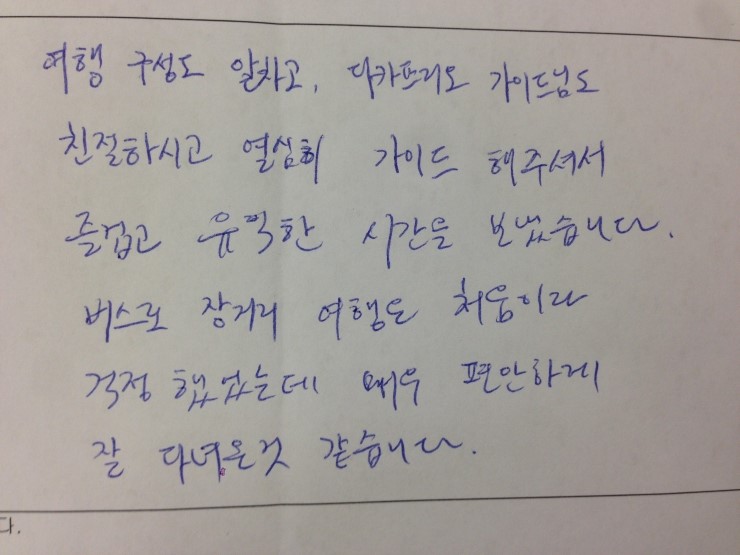 여행 구성도 알차고, 디카프리오 가이드님도
친절하시고 열심히 가이드 해주셔서
즐겁고 유익한 시간을 보냈습니다.
버스로 장거리 여행은 처음이라
걱정 했었는데 매우 편안하게
잘 다녀온것 같습니다.
다.